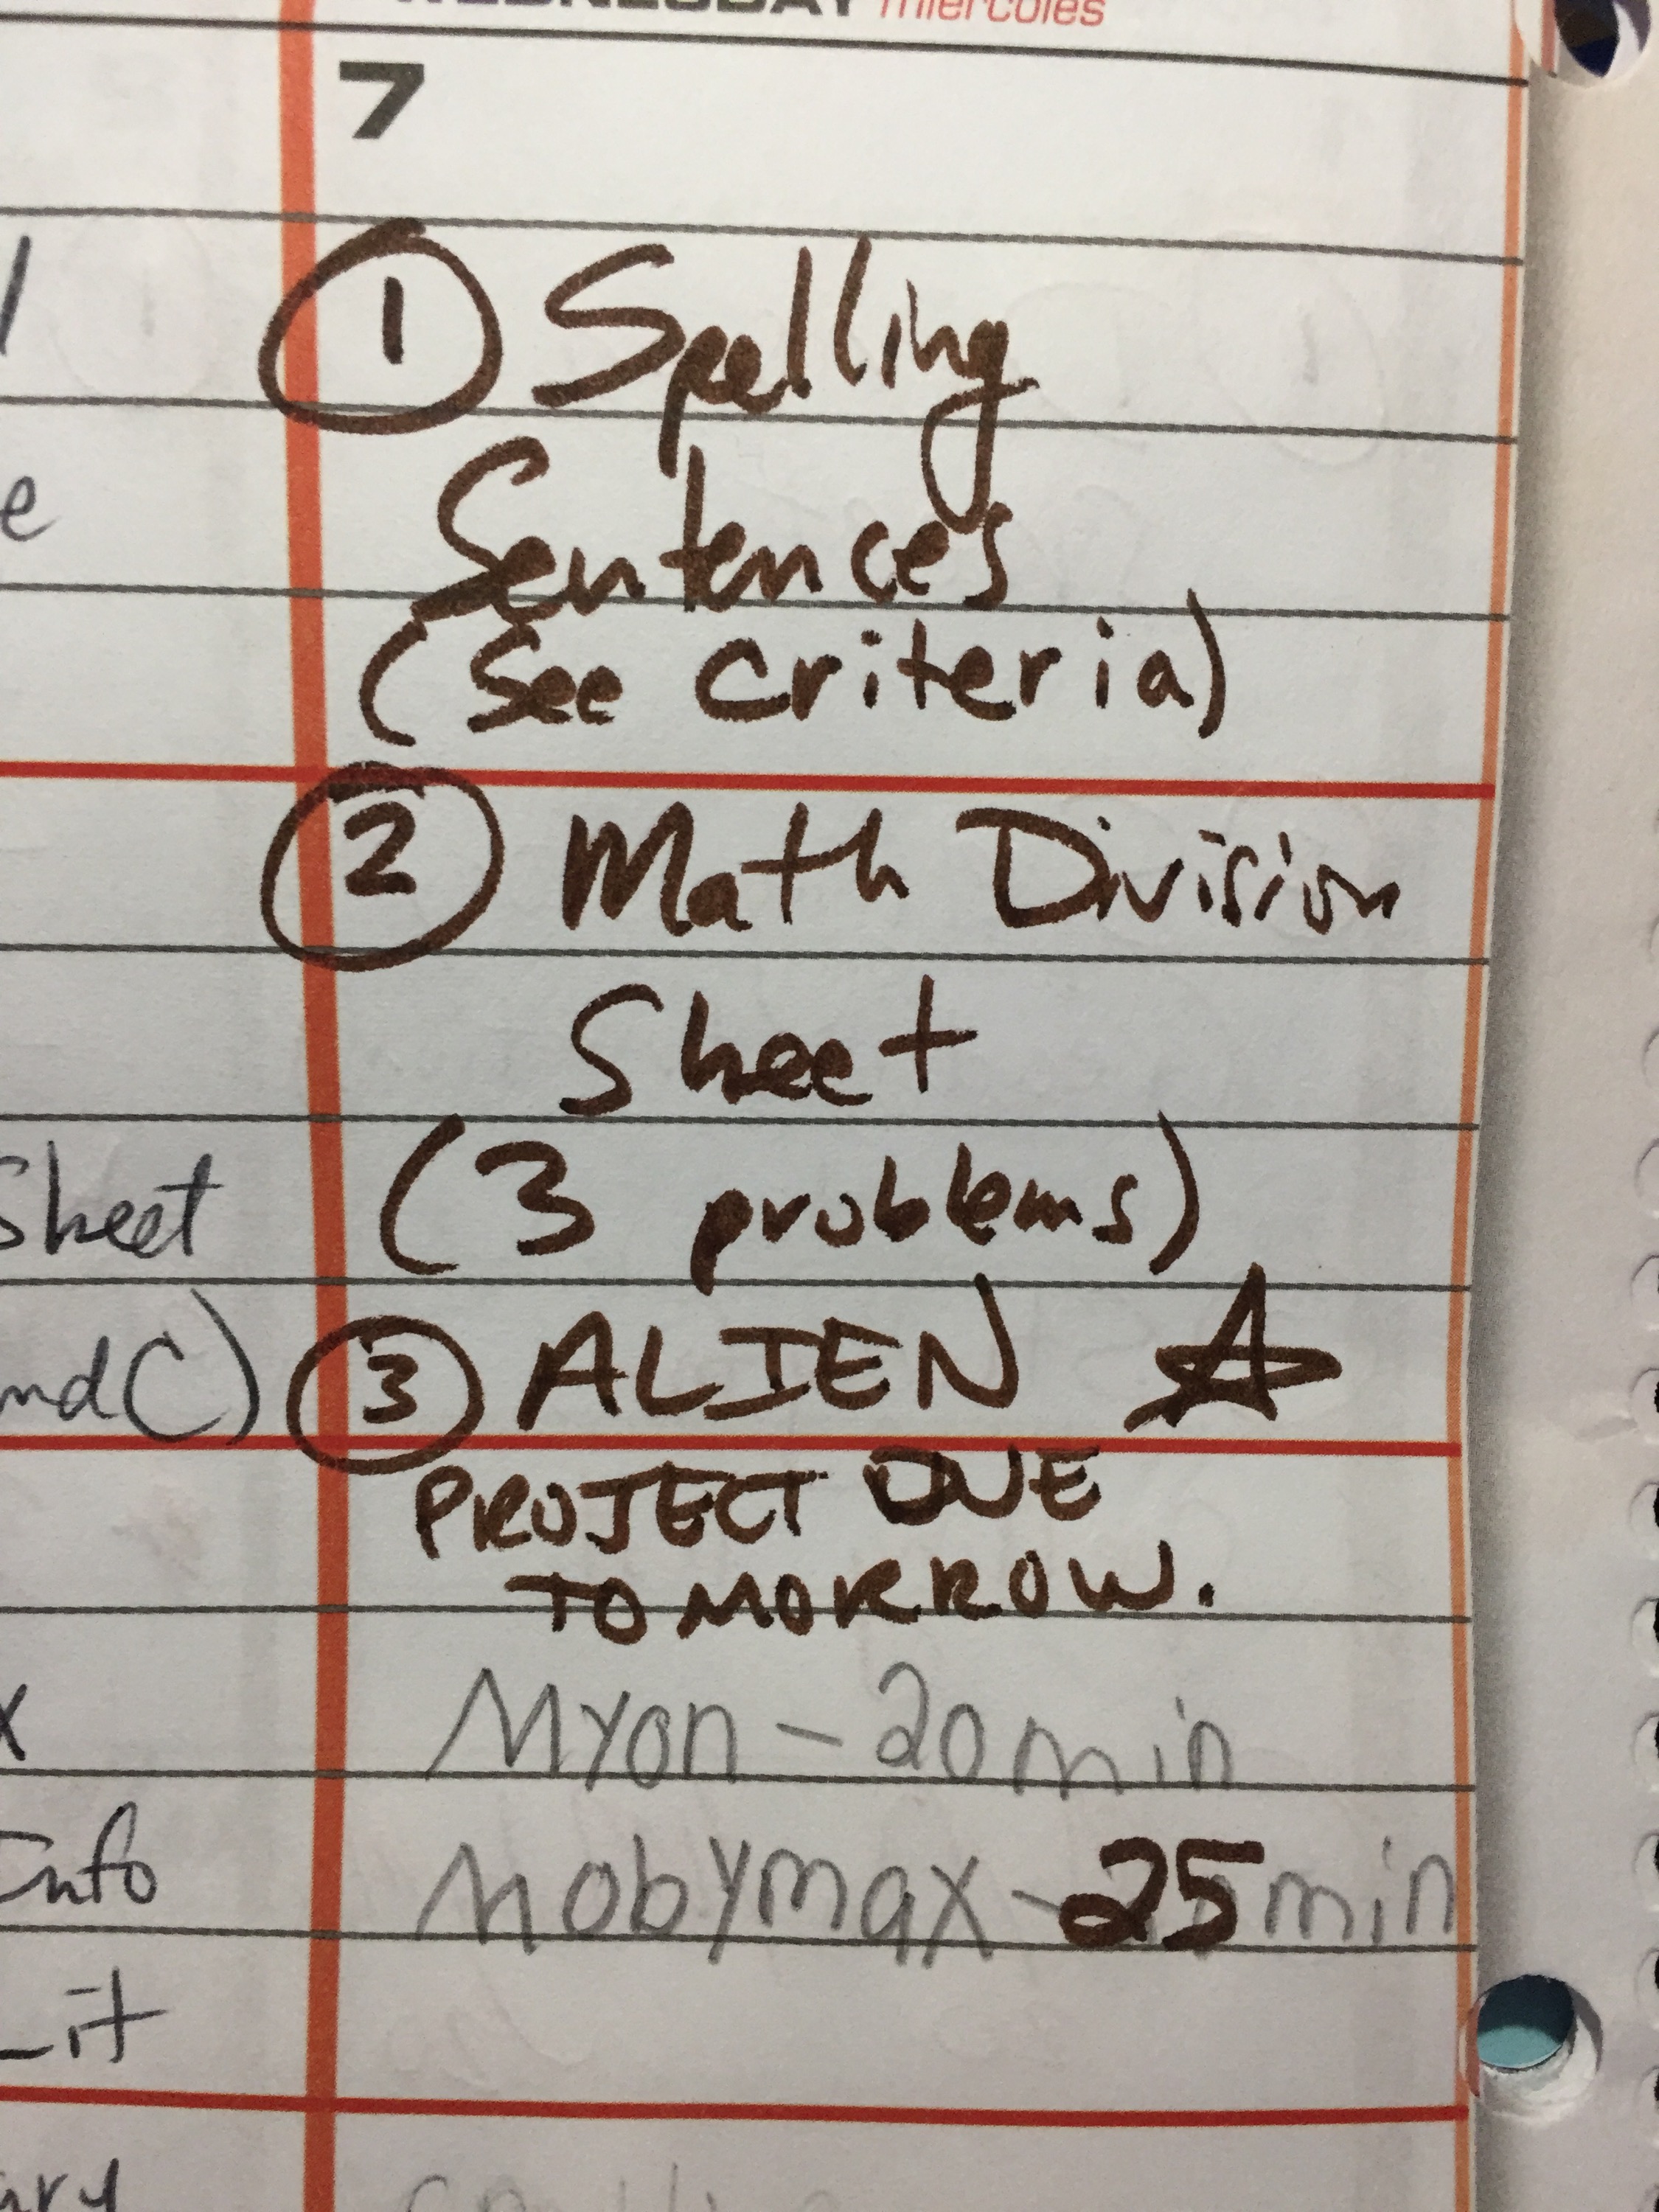 WEDNESDAY miércoles
7
① Spelling
Sentences
(See criteria)
② Math Division
Sheet
(3 problems)
③ ALIEN ☆
PROJECT DUE
TOMORROW.
Myon - 20 min
Mobymax - 25 min
e
Sheet
and C)
x
Info
Lit
ary